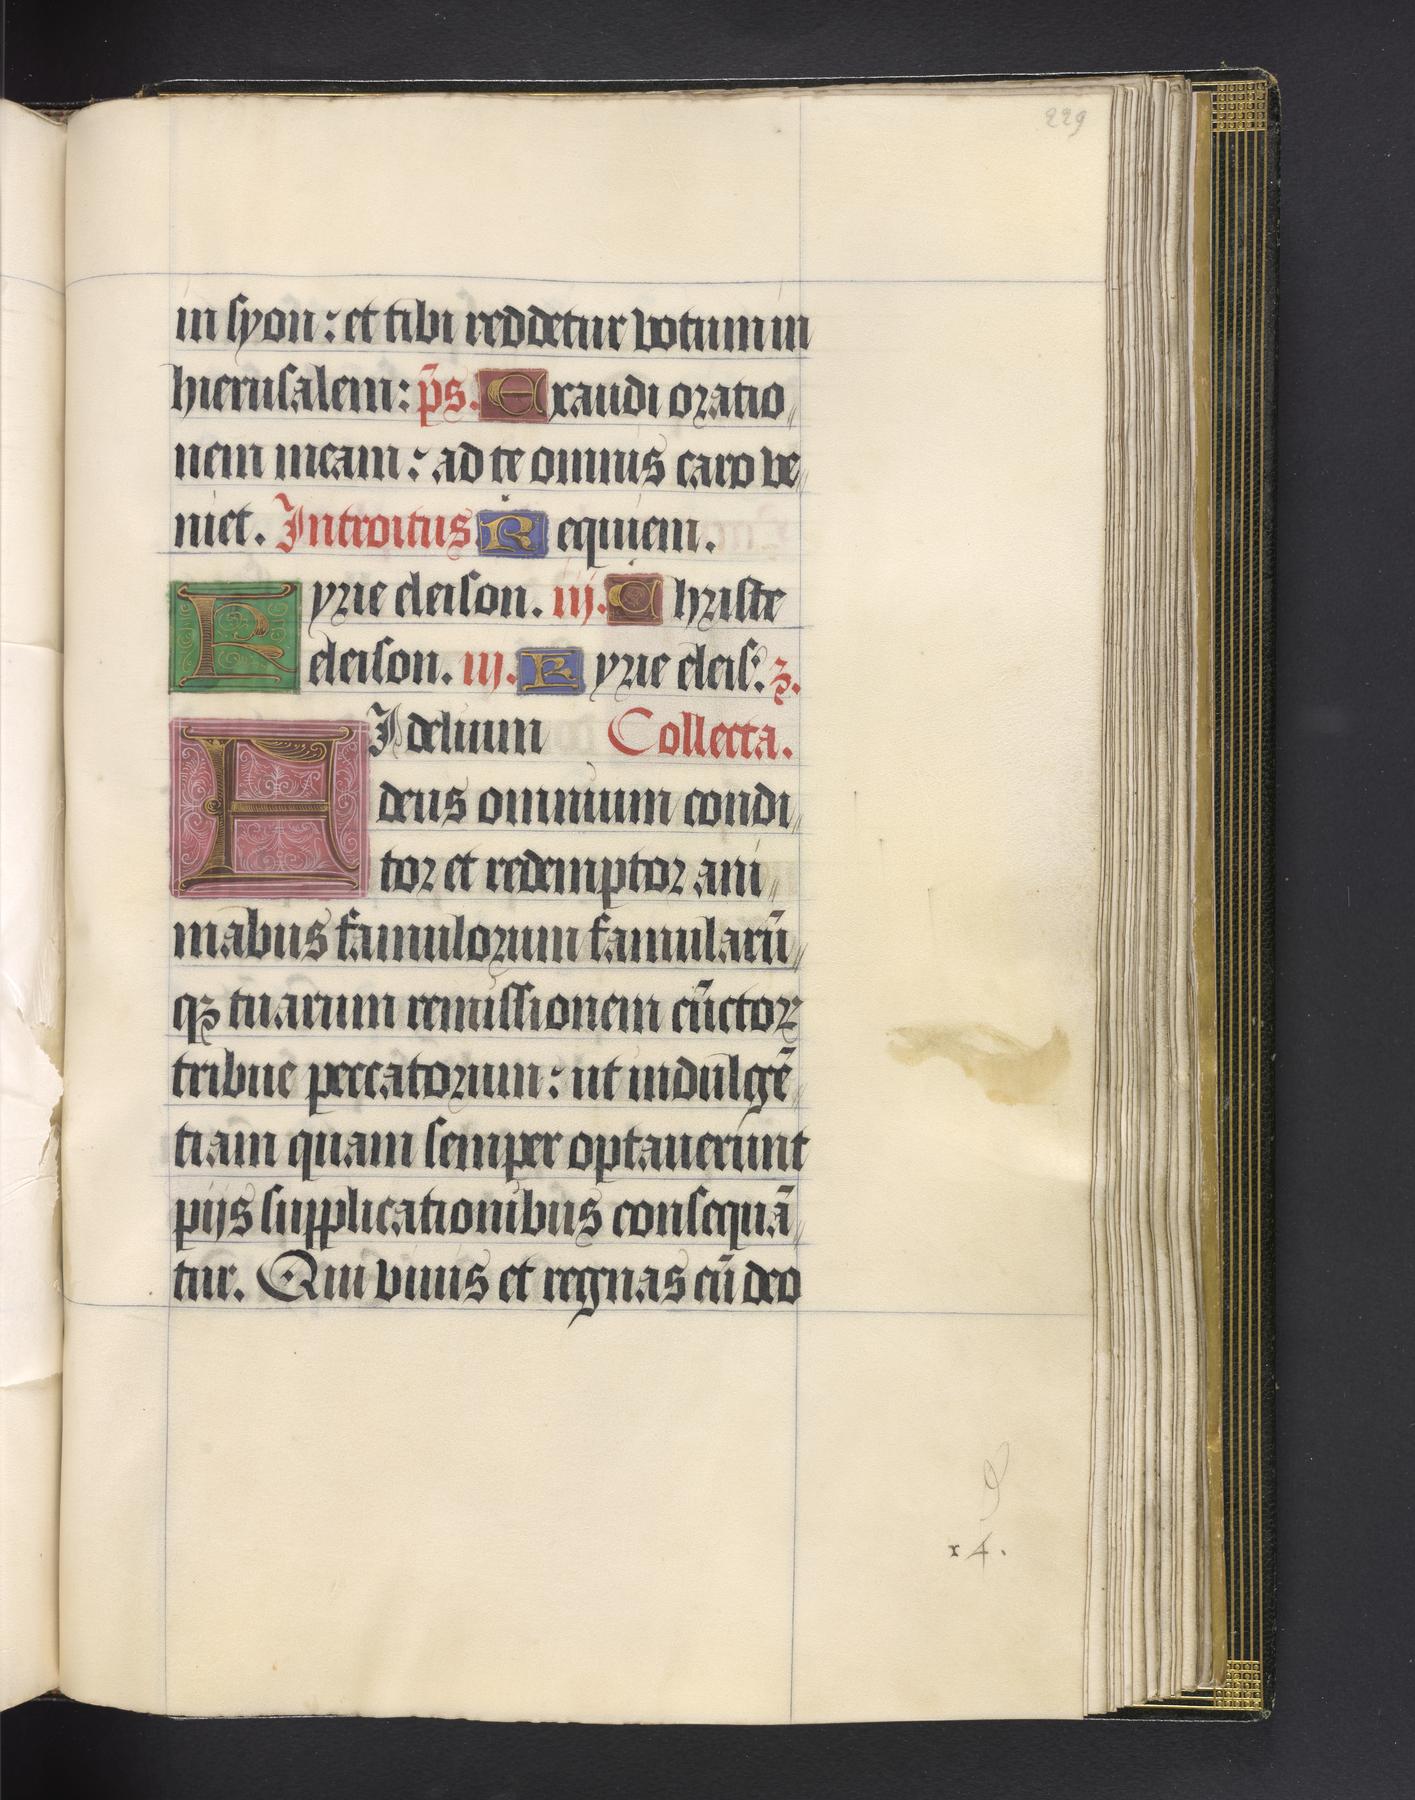 229
in syon: et tibi reddetur votum in
hierusalem: p̄s. Exaudi oratio
nem meam: ad te omnis caro ve
niet. Introitus Requiem.
Kyrie eleison. iij. Christe
eleison. iij. Kyrie eleis:
FIdelium Collecta.
deus omnium condi
tor et redemptor ani
mabus famulorum famularū
qꝫ tuarum remissionem cūctoꝝ
tribue peccatorum: ut indulgē
tiam quam semper optauerunt
pijs supplicationibus consequā
tur. Qui viuis et regnas cū deo
r 4.